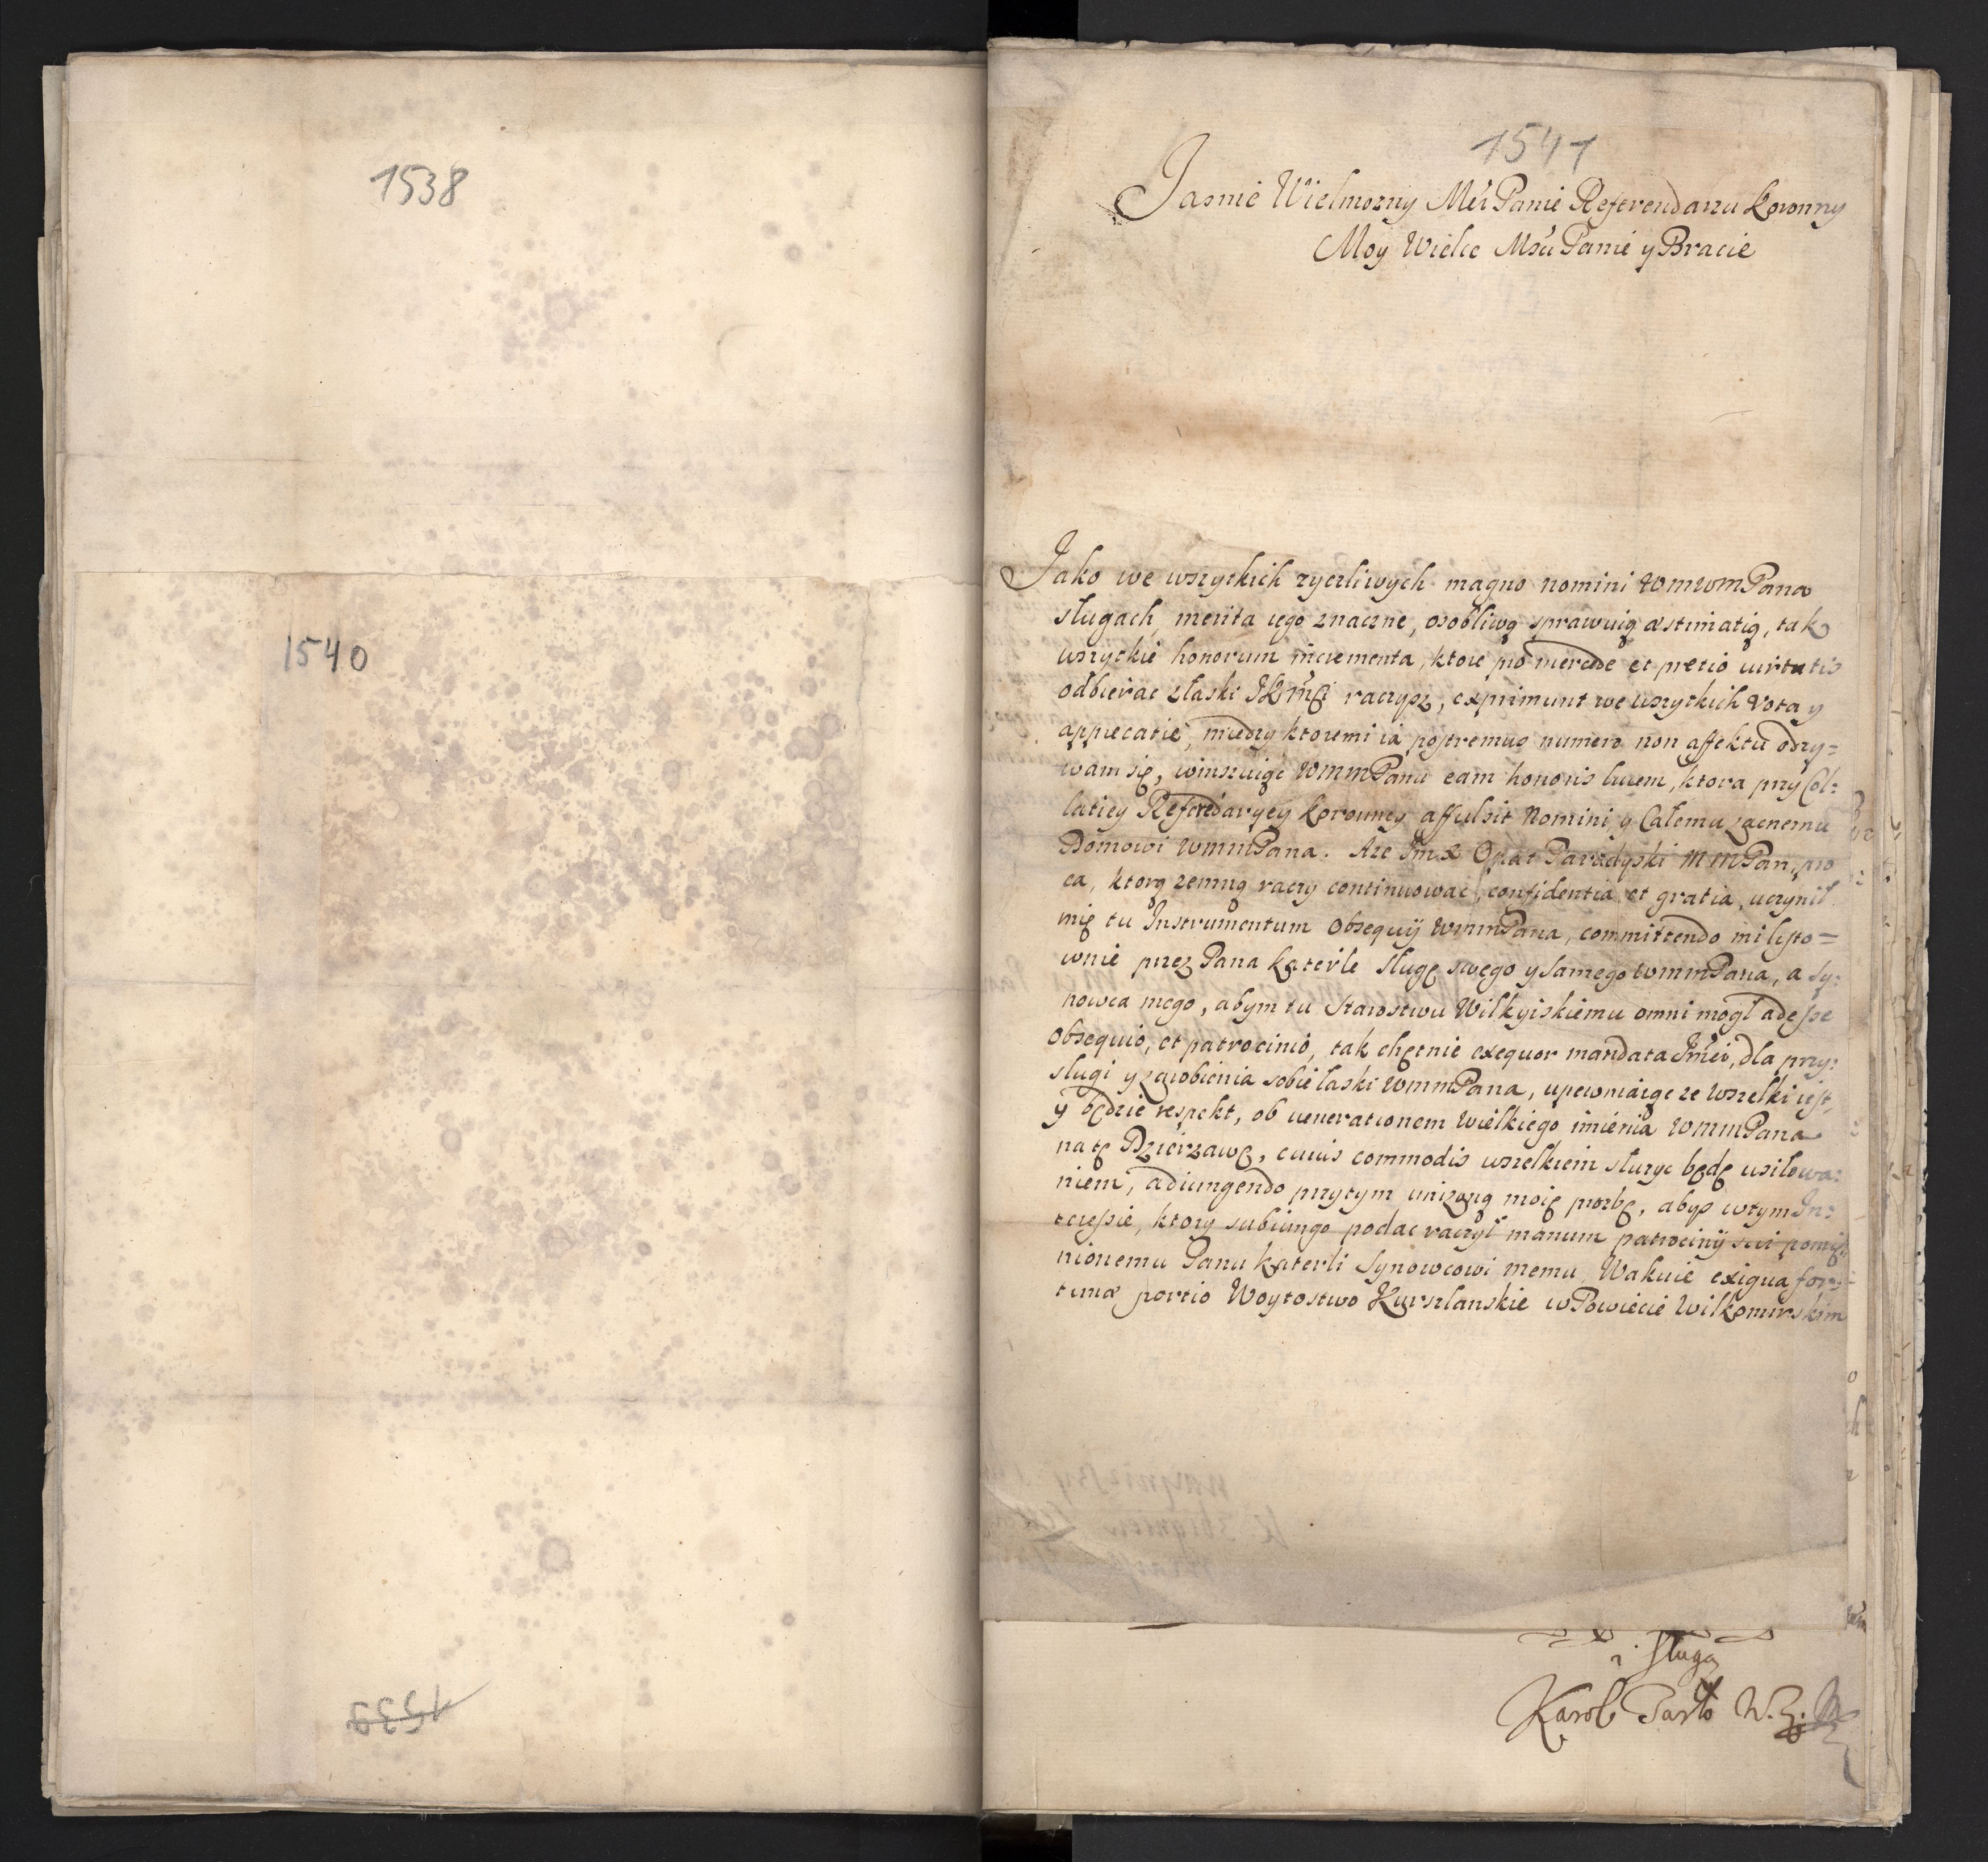 1538
1540
1539
1541
Jasnie Wielmozny Mći Panie Referendarzu Koronny
Moy Wielce Mśći Panie y Bracie
Jako we wszytkich zyczliwych magno nomini WMWMPana
sługach, merita iego znaczne, osobliwą sprawuią æstimatią, tak
wszytkie honorum incrementa, ktore pro mercede et pretio virtutis
odbierac złaski JKMći raczysz, exprimunt we wszytkich Vota y
apprecatie, miedzy ktoremi ia postremus numero non affektu odzy=
wam się, winszuiąc WMMPanu eam honoris lucem, ktora przy Col:
latiey Referedaryey Koronney affulsit Nomini, y Całemu zacnemu
Domowi WMMPana. Aze Jmx Opat Paradyski MMPan, pro
ea, ktorą zemną raczy continuowac, confidentia et gratia, uczynił
mię tu Instrumentum obsequij WMMPana, committendo mi listo=
wnie przez Pana Katerle sługę swego y samego WMMPana, a sy:
nowca mego, abym tu Starostwu Wilkyiskiemu omni mogł adesse
obsequio, et patrocinio, tak chętnie exequor mandata Jmći, dla przy:
sługi y zarobienia sobie łaski WMMPana, upewniaiąc ze wszelki iest,
y będzie respekt, ob venerationem wielkiego imienia WMMPana
na tę Dzierzawę, cuius commodis wszelkiem słuzyc będę usiłowa:
niem, adiungendo przytym unizoną moię prozbę, abys wtym In:
teressie, ktory subiungo podac raczył manum patrocinij sui pomie
nionemu Panu Katerli Synowcowi memu. Wakuie exigua for:
tunæ portio Woytostwo Kurszlanskie w Powiecie Wilkomirskim
i sługa
Karol Parło W.